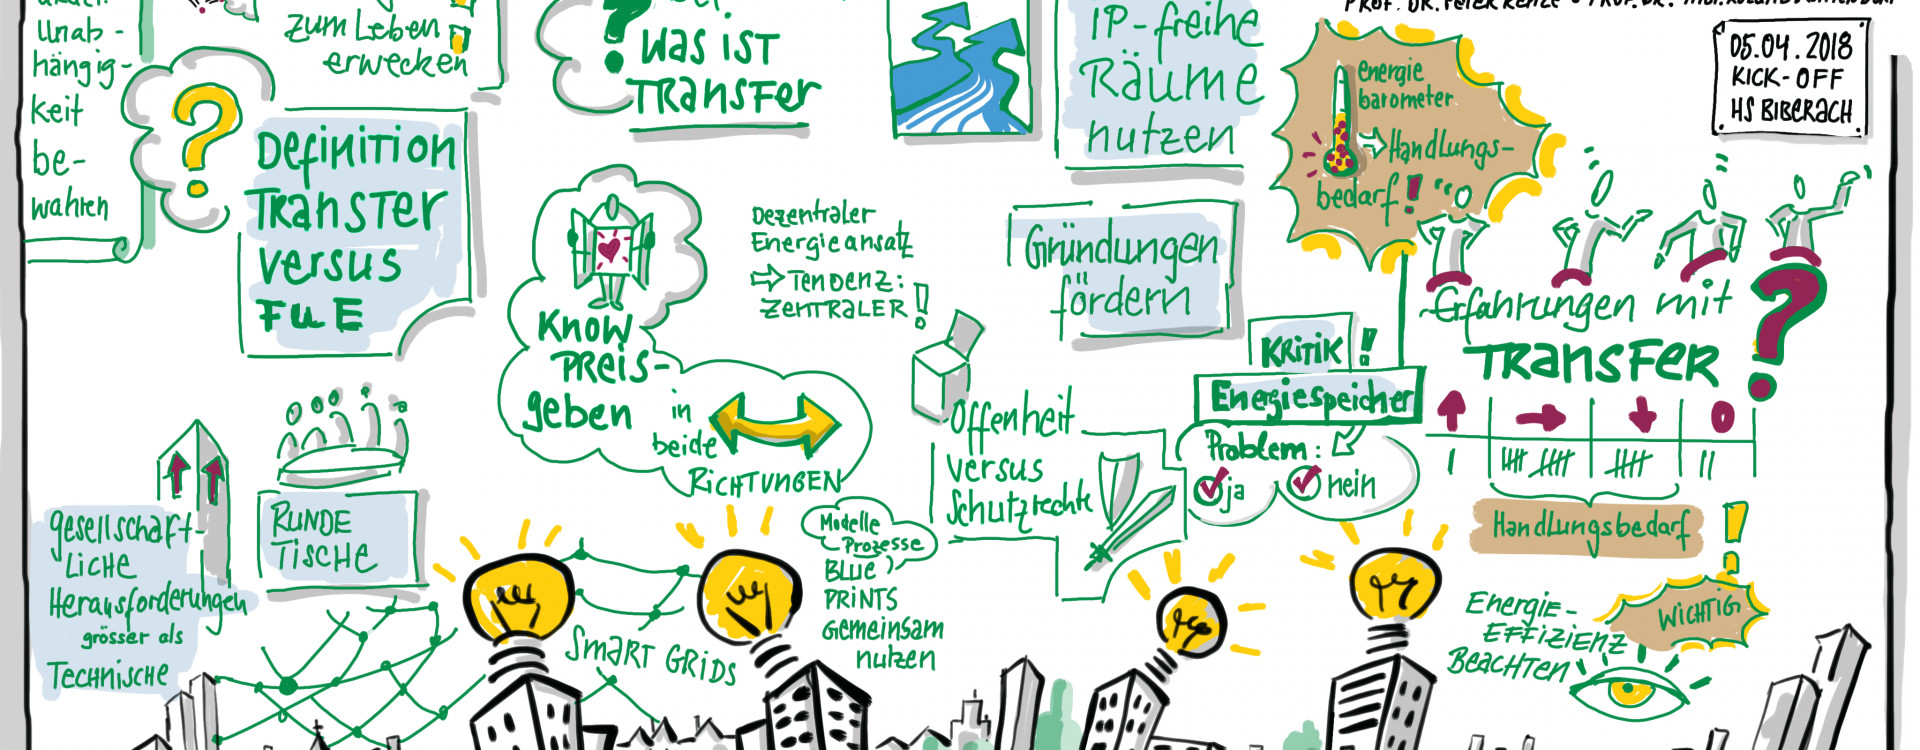 Unab-
hängig-
keit
be-
wahren
zum Leben
erwecken
Definition
Transfer
versus
FuE
Was ist
Transfer
IP-freihe
Räume
nutzen
energie
barometer
Handlungs-
bedarf!
05.04.2018
KICK-OFF
HS BIBERACH
Know
Preis-
geben
in
beide
RICHTUNGEN
Dezentraler
Energieansatz
Tendenz:
Zentraler!
Gründungen
fördern
Erfahrungen mit
Transfer
0
Handlungsbedarf
Kritik!
Energiespeicher
Problem:
ja
nein
Offenheit
versus
Schutzrechte
Runde
Tische
gesellschaft-
liche
Herausforderungen
grösser als
Technische
Smart Grids
Modelle
Prozesse
Blue
Prints
Gemeinsam
nutzen
Energie-
Effizienz
Beachten
Wichtig